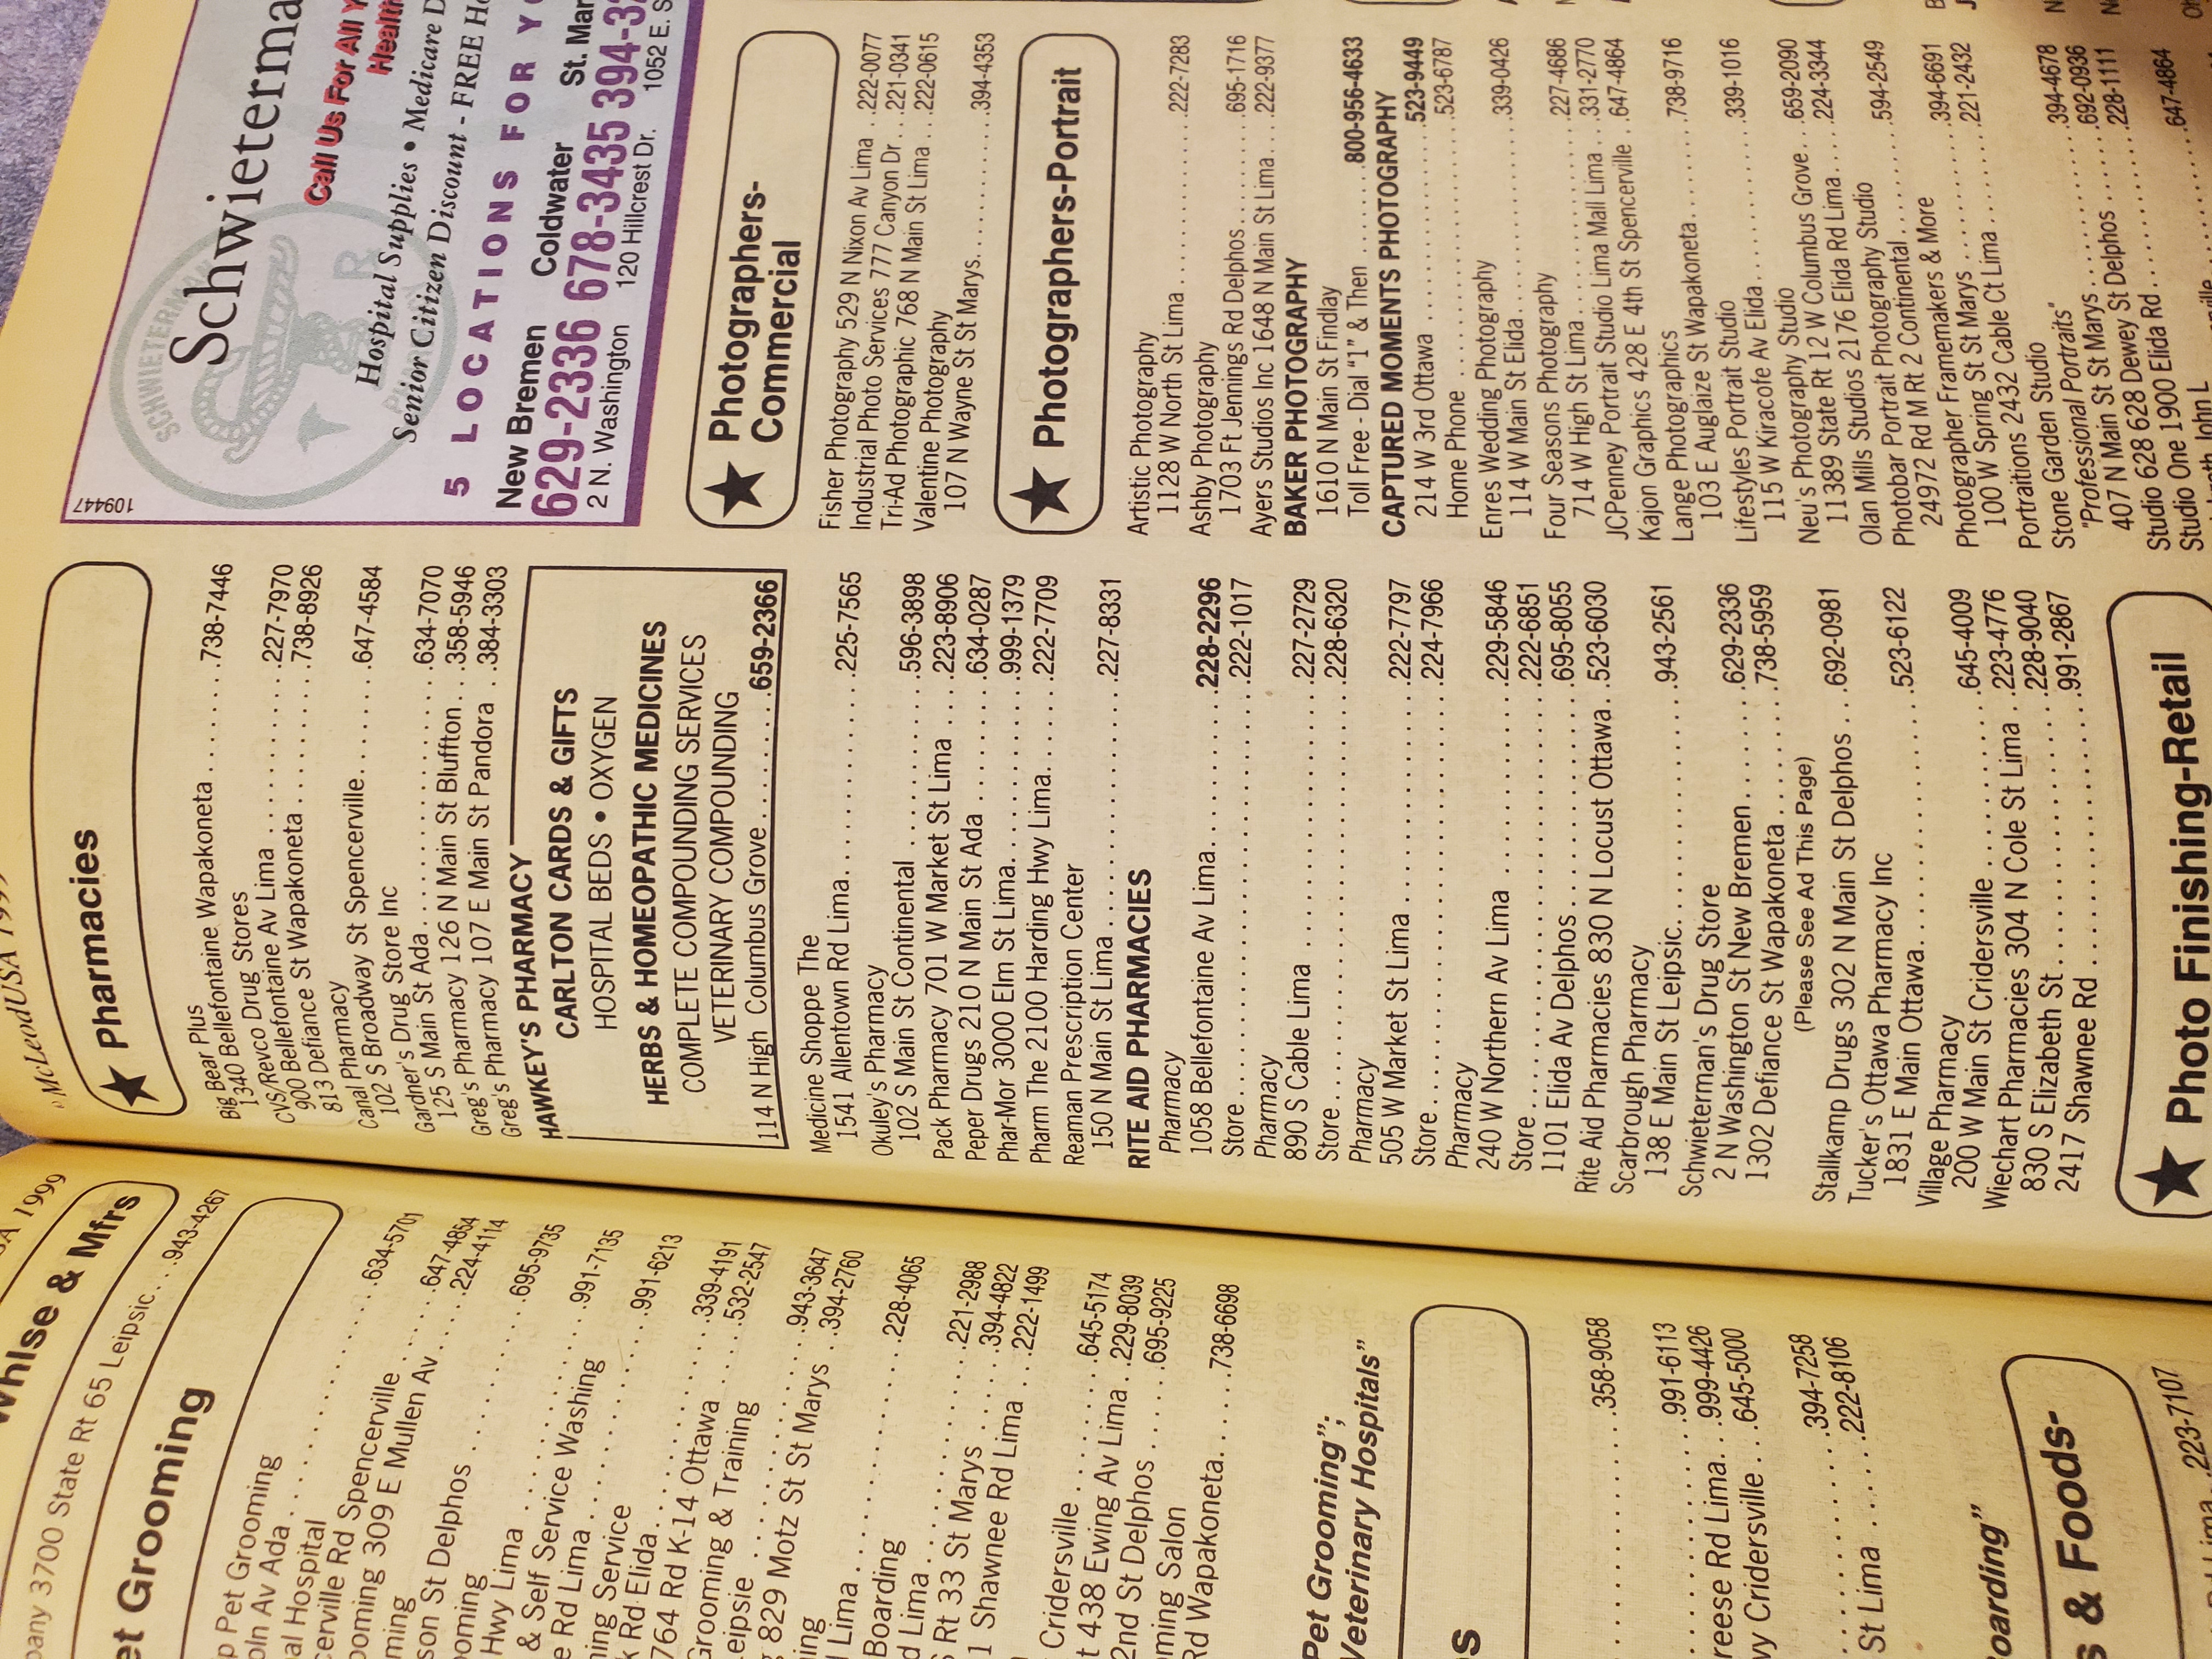 1999
Whlse & Mfrs
3700 State Rt 65 Leipsic....943-4267
Grooming
Pet Grooming
Av Ada...............634-5701
Hospital
Rd Spencerville......647-4854
309 E Mullen Av......224-4114
St Delphos...........695-9735
Hwy Lima
& Self Service Washing
Rd Lima..............991-7135
Service
Rd Elida.............991-6213
764 Rd K-14 Ottawa...339-4191
Grooming & Training..532-2547
829 Motz St St Marys.943-3647
394-2760
Lima.................228-4065
Boarding
Lima.................221-2988
Rt 33 St Marys.......394-4822
Shawnee Rd Lima......222-1499
Cridersville.........645-5174
438 Ewing Av Lima....229-8039
2nd St Delphos.......695-9225
Salon
Rd Wapakoneta........738-6698
Pet Grooming";
Veterinary Hospitals"
358-9058
991-6113
Rd Lima..............999-4426
Cridersville.........645-5000
394-7258
St Lima..............222-8106
& Foods-
223-7107
McLeodUSA
★ Pharmacies
Big Bear Plus
1340 Bellefontaine Wapakoneta........738-7446
CVS/Revco Drug Stores
900 Bellefontaine Av Lima..........227-7970
813 Defiance St Wapakoneta.........738-8926
Canal Pharmacy
102 S Broadway St Spencerville......647-4584
Gardner's Drug Store Inc
125 S Main St Ada..................634-7070
Greg's Pharmacy 126 N Main St Bluffton...358-5946
Greg's Pharmacy 107 E Main St Pandora..384-3303
HAWKEY'S PHARMACY
CARLTON CARDS & GIFTS
HOSPITAL BEDS • OXYGEN
HERBS & HOMEOPATHIC MEDICINES
COMPLETE COMPOUNDING SERVICES
VETERINARY COMPOUNDING
114 N High Columbus Grove...........659-2366
Medicine Shoppe The
1541 Allentown Rd Lima..............225-7565
Okuley's Pharmacy
102 S Main St Continental...........596-3898
Pack Pharmacy 701 W Market St Lima....223-8906
Peper Drugs 210 N Main St Ada........634-0287
Phar-Mor 3000 Elm St Lima............999-1379
Pharm The 2100 Harding Hwy Lima......222-7709
Reaman Prescription Center
150 N Main St Lima..................227-8331
RITE AID PHARMACIES
Pharmacy
1058 Bellefontaine Av Lima...........228-2296
Store................................222-1017
Pharmacy
890 S Cable Lima....................227-2729
Store................................228-6320
Pharmacy
505 W Market St Lima................222-7797
Store................................224-7966
Pharmacy
240 W Northern Av Lima..............229-5846
Store................................222-6851
1101 Elida Av Delphos...............695-8055
Rite Aid Pharmacies 830 N Locust Ottawa..523-6030
Scarbrough Pharmacy
138 E Main St Leipsic...............943-2561
Schwieterman's Drug Store
2 N Washington St New Bremen........629-2336
1302 Defiance St Wapakoneta.........738-5959
(Please See Ad This Page)
Stallkamp Drugs 302 N Main St Delphos...692-0981
Tucker's Ottawa Pharmacy Inc
1831 E Main Ottawa..................523-6122
Village Pharmacy
200 W Main St Cridersville..........645-4009
Wiechart Pharmacies 304 N Cole St Lima..223-4776
830 S Elizabeth St..................228-9040
2417 Shawnee Rd.....................991-2867
★ Photo Finishing-Retail
109447
SCHWIETERMAN
R
Schwieterma
Call Us For All Y
Health
Hospital Supplies • Medicare
Senior Citizen Discount - FREE
5 LOCATIONS FOR
New Bremen Coldwater St. Mar
629-2336 678-3435 394-3
2 N. Washington 120 Hillcrest Dr. 1052 E. S
★ Photographers-
Commercial
Fisher Photography 529 N Nixon Av Lima..222-0077
Industrial Photo Services 777 Canyon Dr...221-0341
Tri-Ad Photographic 768 N Main St Lima...222-0615
Valentine Photography
107 N Wayne St St Marys..............394-4353
★ Photographers-Portrait
Artistic Photography
1128 W North St Lima................222-7283
Ashby Photography
1703 Ft Jennings Rd Delphos.........695-1716
Ayers Studios Inc 1648 N Main St Lima...222-9377
BAKER PHOTOGRAPHY
1610 N Main St Findlay
Toll Free - Dial "1" & Then........800-956-4633
CAPTURED MOMENTS PHOTOGRAPHY
214 W 3rd Ottawa....................523-9449
Home Phone..........................523-6787
Enres Wedding Photography
114 W Main St Elida.................339-0426
Four Seasons Photography
714 W High St Lima..................227-4686
JCPenney Portrait Studio Lima Mall Lima...331-2770
Kajon Graphics 428 E 4th St Spencerville..647-4864
Lange Photographics
103 E Auglaize St Wapakoneta........738-9716
Lifestyles Portrait Studio
115 W Kiracofe Av Elida.............339-1016
Neu's Photography Studio
11389 State Rt 12 W Columbus Grove...659-2090
Olan Mills Studios 2176 Elida Rd Lima....224-3344
Photobar Portrait Photography Studio
24972 Rd M Rt 2 Continental.........594-2549
Photographer Framemakers & More
100 W Spring St St Marys............394-6691
Portraitions 2432 Cable Ct Lima......221-2432
Stone Garden Studio
"Professional Portraits"
407 N Main St St Marys..............394-4678
Studio 628 628 Dewey St Delphos......692-0936
Studio One 1900 Elida Rd.............228-1111
John L
647-4864